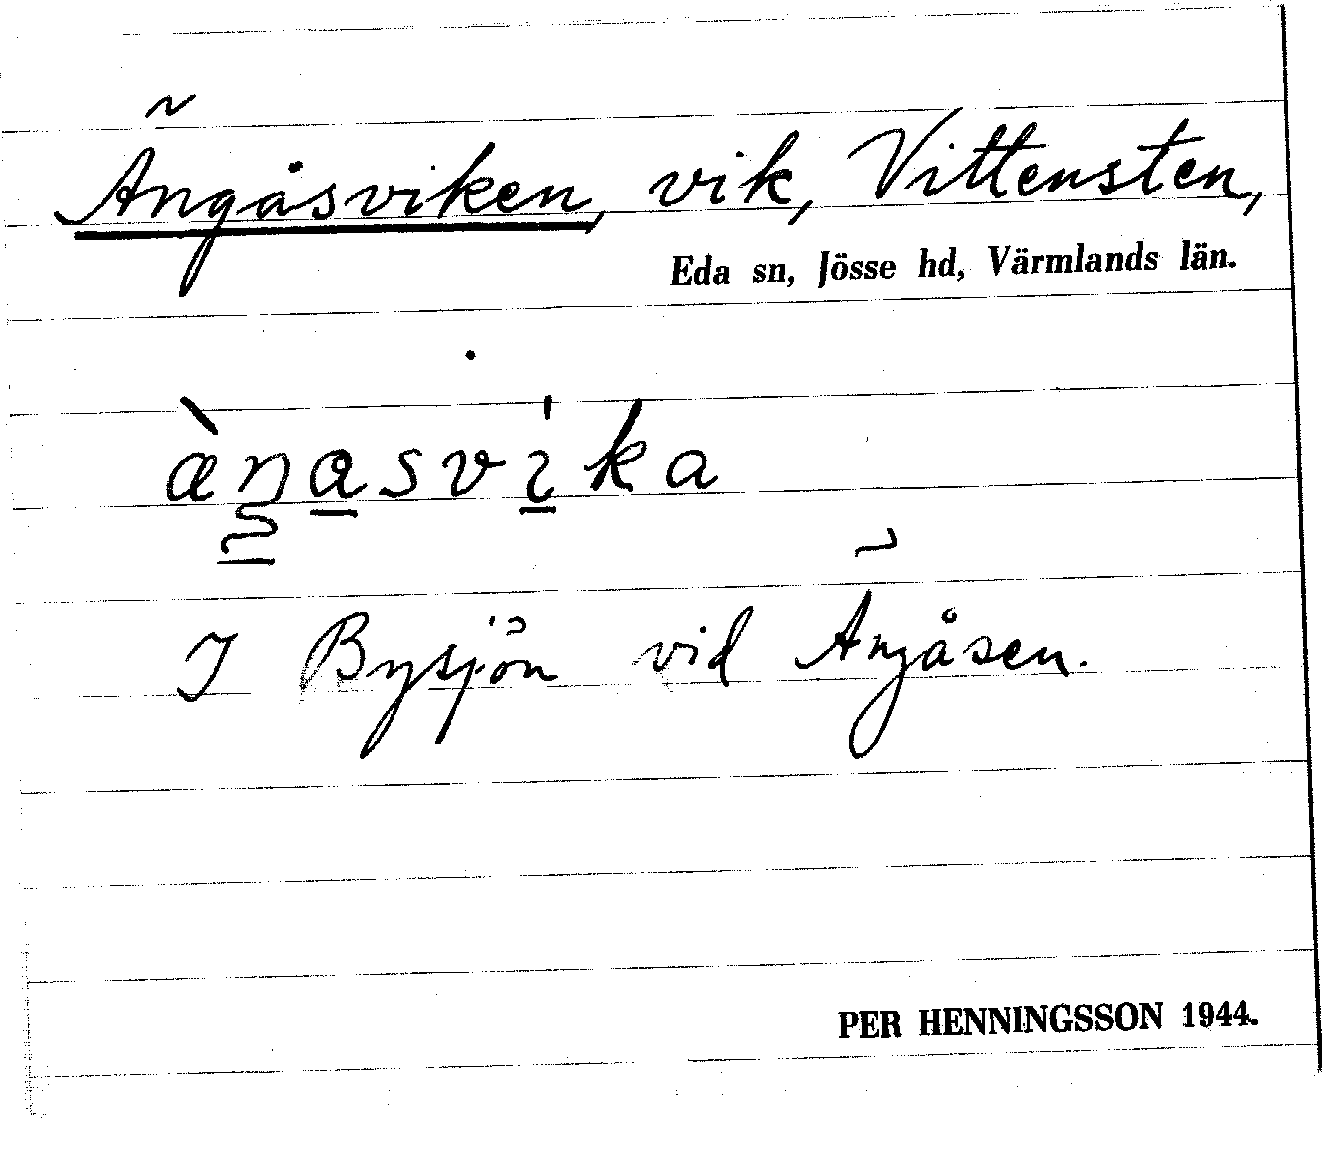 Ängåsviken, vik, Vittensten,
Eda sn, Jösse hd, Värmlands län.
àŋa̲svi̲ka
I Bysjön vid Ängåsen.
PER HENNINGSSON 1944.